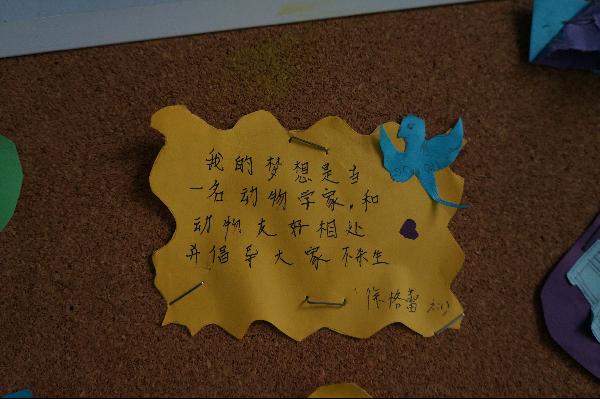 我的梦想是当
一名动物学家，和
动物友好相处
并倡导大家不杀生
徐格蕾